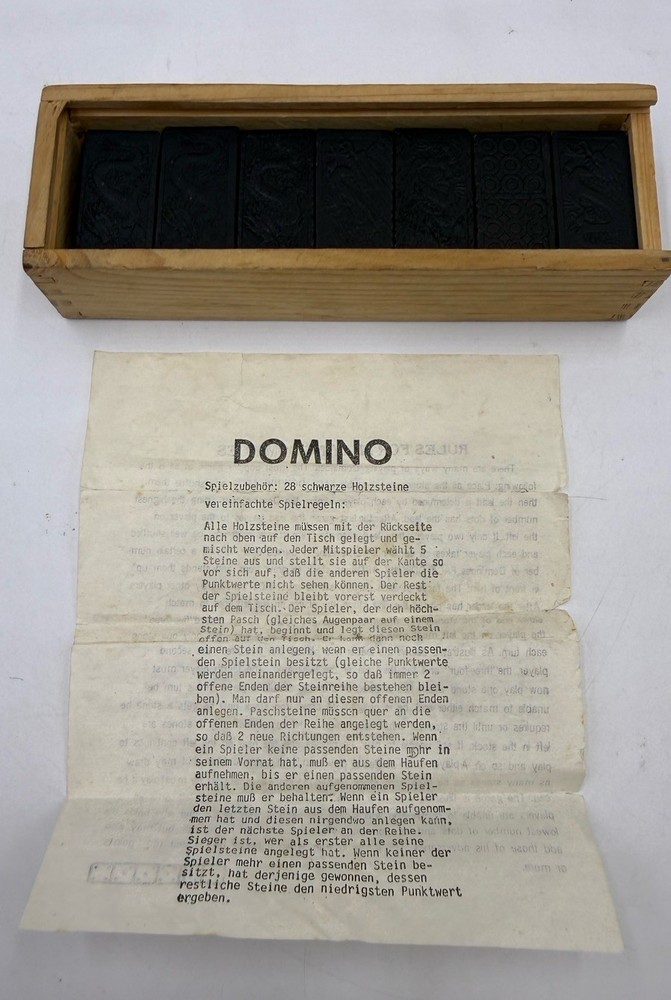 DOMINO
Spielzubehör: 28 schwarze Holzsteine
vereinfachte Spielregeln:
Alle Holzsteine müssen mit der Rückseite
nach oben auf den Tisch gelegt und ge-
mischt werden. Jeder Mitspieler wählt 5
Steine aus und stellt sie auf der Kante so
vor sich auf, daß die anderen Spieler die
Punktwerte nicht sehen können. Der Rest
der Spielsteine bleibt vorerst verdeckt
auf dem Tisch. Der Spieler, der den höch-
sten Pasch (gleiches Augenpaar auf einem
Stein) hat, beginnt und legt diesen Stein
offen auf den Tisch. Er kann dann noch
einen Stein anlegen, wenn er einen passen-
den Spielstein besitzt (gleiche Punktwerte
werden aneinandergelegt, so daß immer 2
offene Enden der Steinreihe bestehen blei-
ben). Man darf nur an diesen offenen Enden
anlegen. Paschsteine müssen quer an die
offenen Enden der Reihe angelegt werden,
so daß 2 neue Richtungen entstehen. Wenn
ein Spieler keine passenden Steine mehr in
seinem Vorrat hat, muß er aus dem Haufen
aufnehmen, bis er einen passenden Stein
erhält. Die anderen aufgenommenen Spiel-
steine muß er behalten. Wenn ein Spieler
den letzten Stein aus dem Haufen aufgenom-
men hat und diesen nirgendwo anlegen kann,
ist der nächste Spieler an der Reihe.
Sieger ist, wer als erster alle seine
Spielsteine angelegt hat. Wenn keiner der
Spieler mehr einen passenden Stein be-
sitzt, hat derjenige gewonnen, dessen
restliche Steine den niedrigsten Punktwert
ergeben.